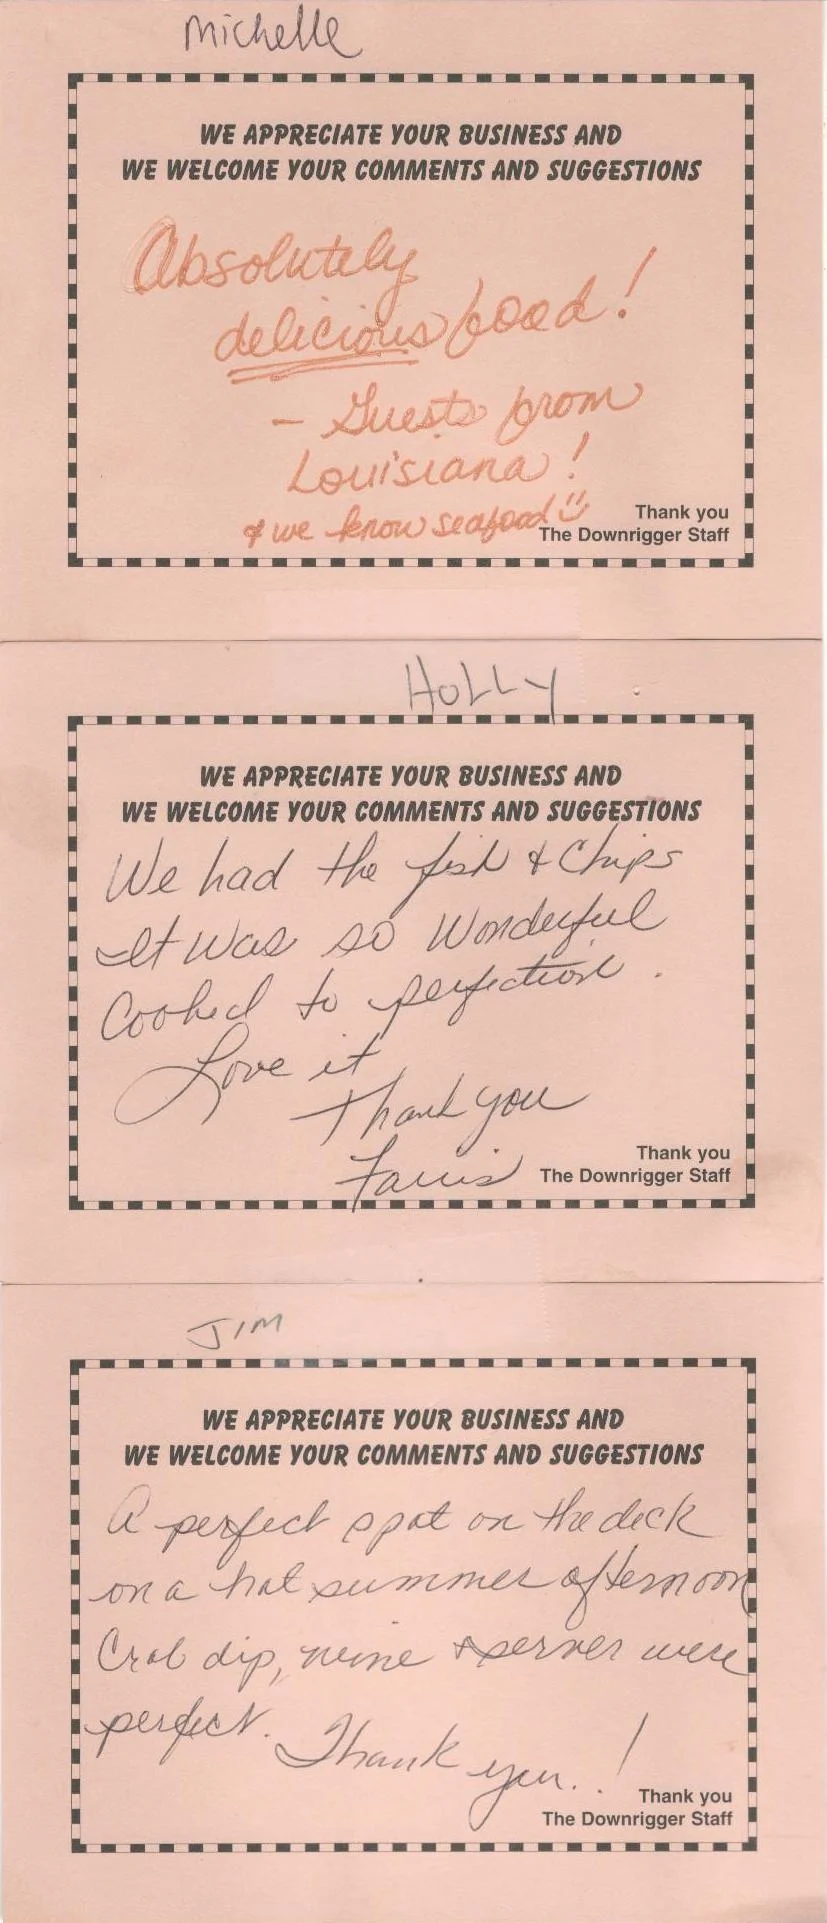 Michelle
WE APPRECIATE YOUR BUSINESS AND
WE WELCOME YOUR COMMENTS AND SUGGESTIONS
Absolutely
delicious food!
- Guests from
Louisiana!
& we know seafood
Thank you
The Downrigger Staff
HOLLY
WE APPRECIATE YOUR BUSINESS AND
WE WELCOME YOUR COMMENTS AND SUGGESTIONS
We had the fish & Chips
It was so Wonderful
Cooked to perfection.
Love it
Thank you
Thank you
The Downrigger Staff
JIM
WE APPRECIATE YOUR BUSINESS AND
WE WELCOME YOUR COMMENTS AND SUGGESTIONS
A perfect spot on the deck
on a hot summer afternoon
Crab dip, wine & server were
perfect.
Thank you..!
Thank you
The Downrigger Staff